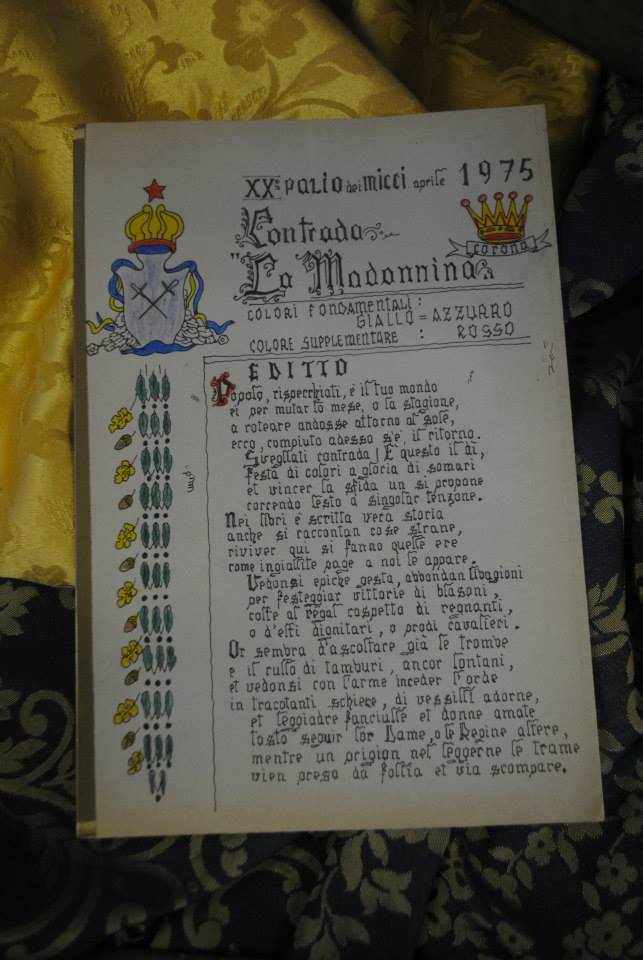 XX° palio dei micci aprile 1975
Contrada
"La Madonnina"
corona
COLORI FONDAMENTALI :
GIALLO = AZZURRO
COLORE SUPPLEMENTARE : ROSSO
EDITTO
Popolo, rispecchiati, è il tuo mondo
ei per mutar lo mese, o la stagione,
a roteare andosse attorno al sole,
ecco, compiuto adesso s'è, il ritorno.
Svegliati contrada! È questo il dì,
festa di colori a gloria di somari
et vincer la sfida un si propone
correndo lesto a singolar tenzone.
Nei libri è scritta vera storia
anche si raccontan cose strane,
riviver qui si fanno quelle ere
come ingiallite page a noi le appare.
Vedonsi epiche gesta, abbondan libagioni
per festeggiar vittorie di blasoni,
colte al regal cospetto di regnanti,
o d'elti dignitari, o prodi cavalieri.
Or sembra d'ascoltare già le trombe
e il rullo di tamburi, ancor lontani,
et vedonsi con l'arme inceder l'orde
in tracotanti schiere, di vessilli adorne,
et leggiadre fanciulle et donne amate
tosto seguir lor Dame, o le Regine altere,
mentre un prigion nel leggerne le trame
vien preso da follia et via scompare.